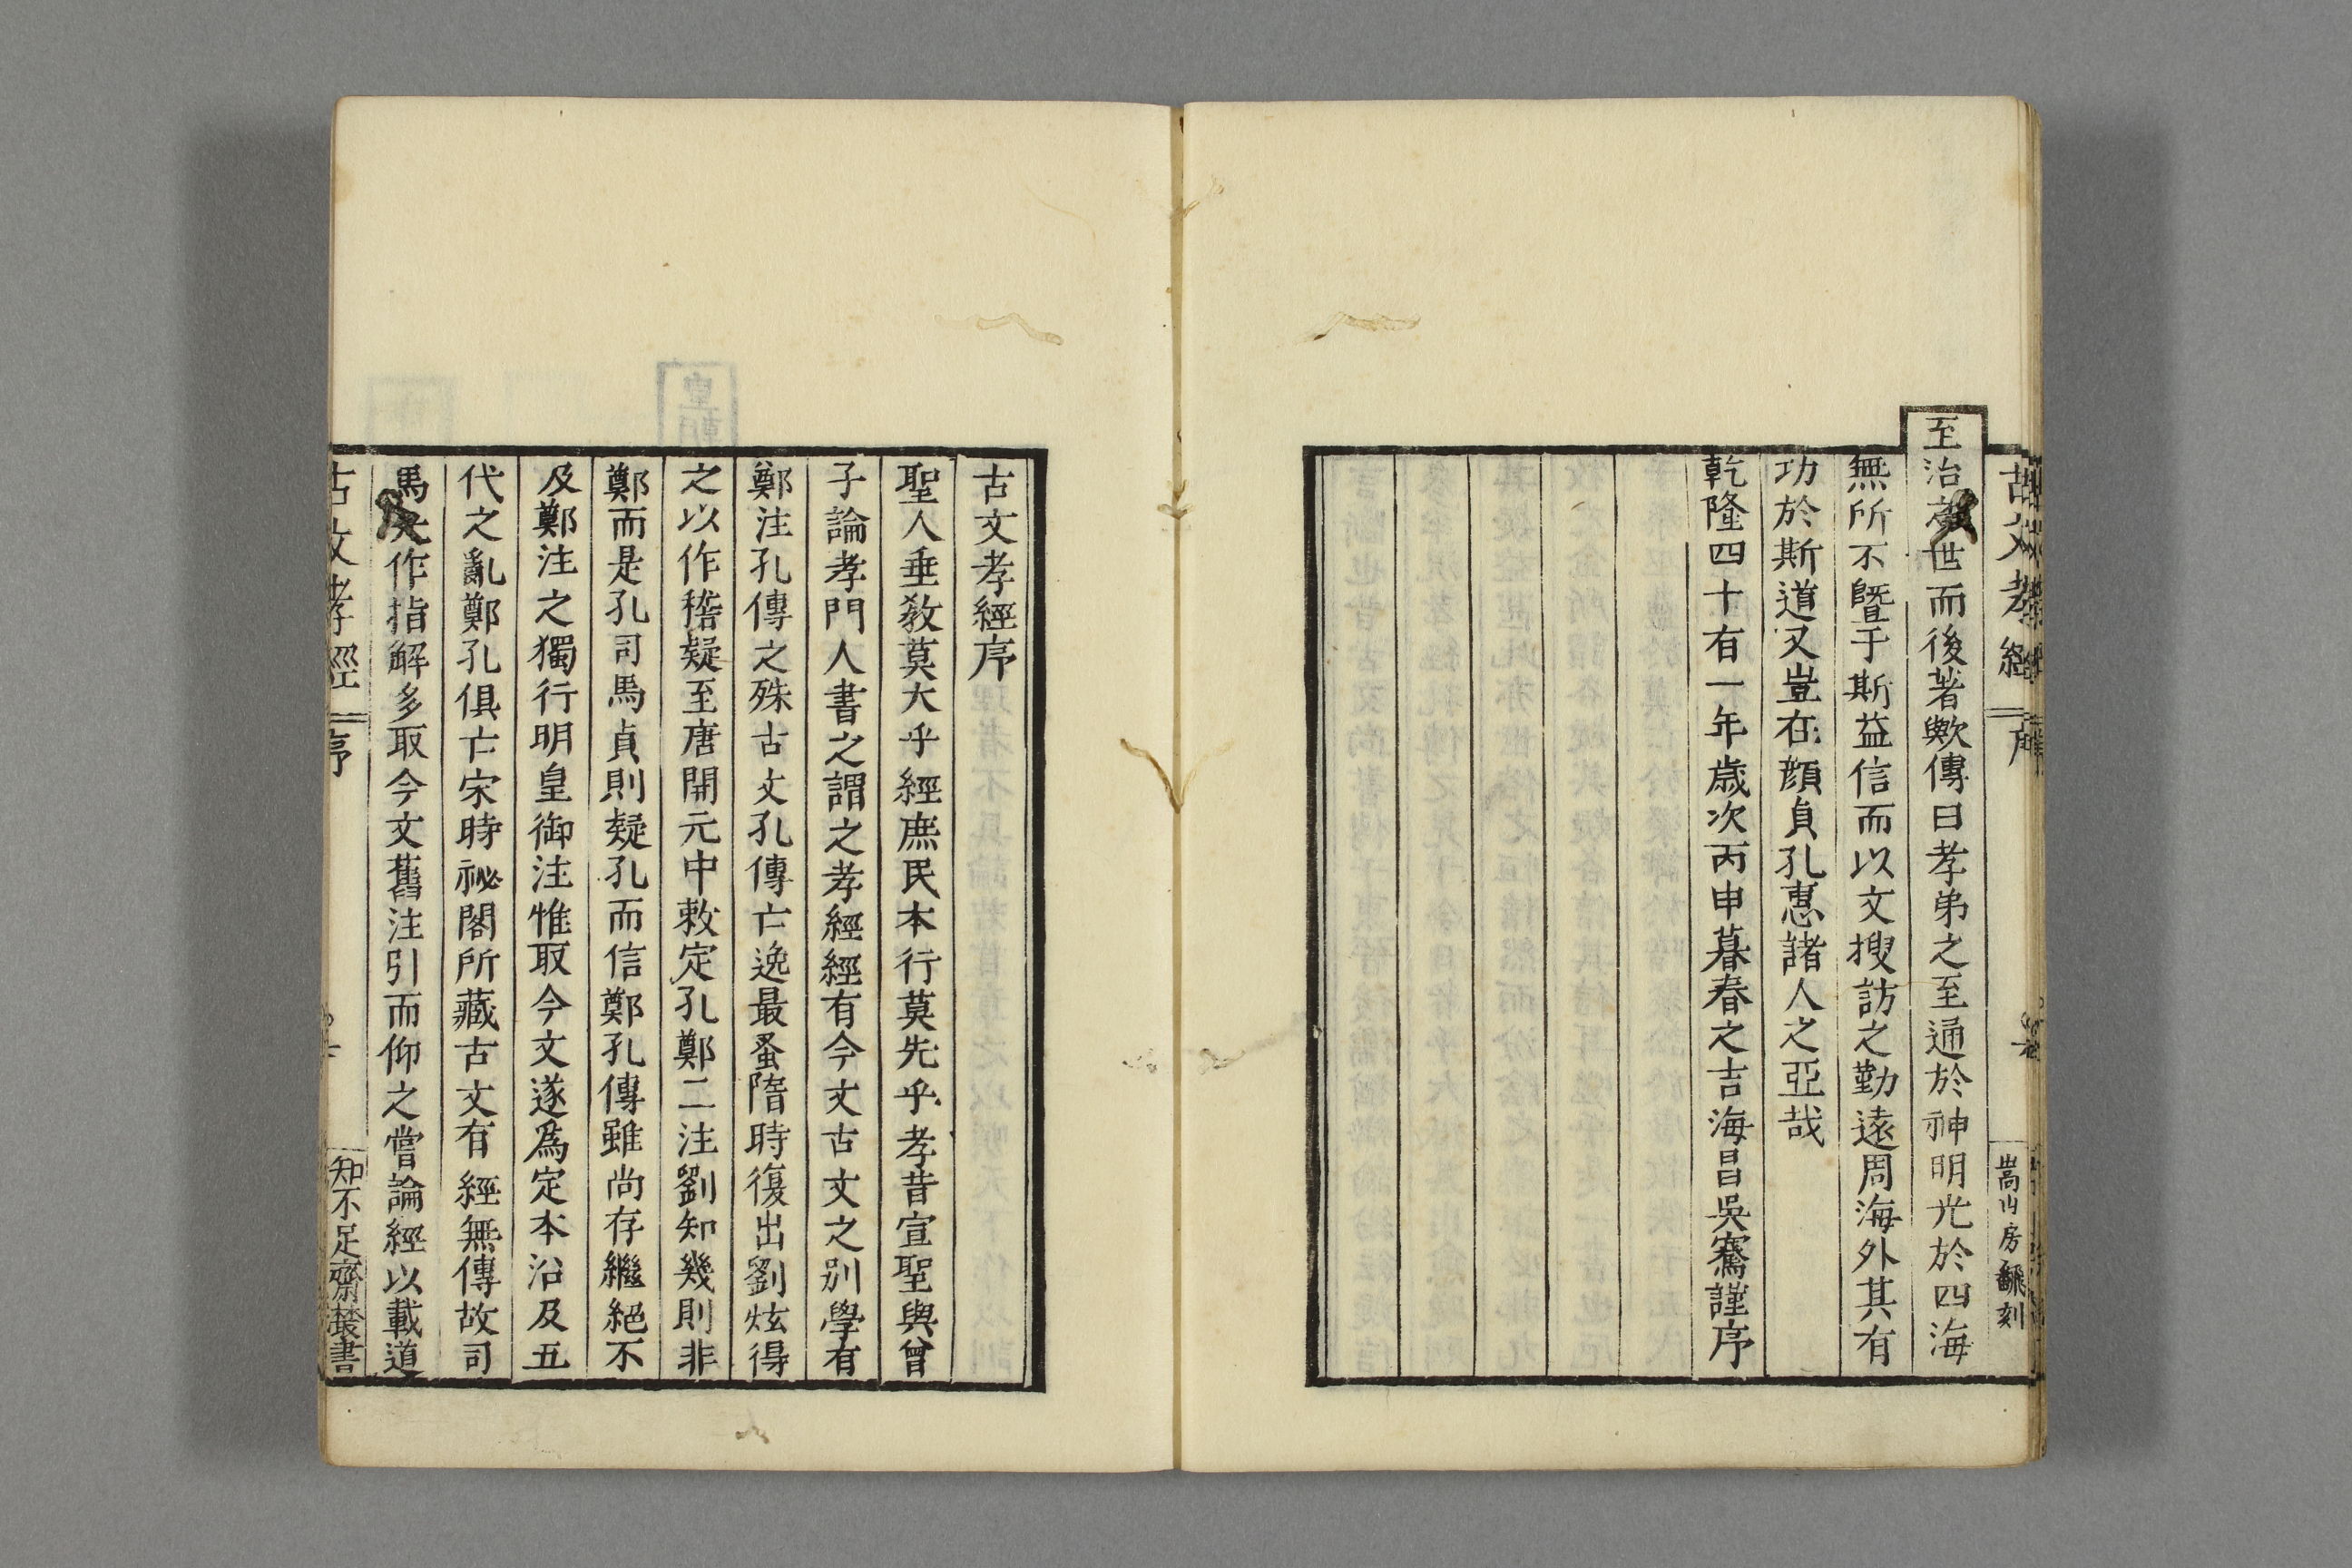 古文孝經
序
嵩山房翻刻
至治之世而後著歟傳曰孝弟之至通於神明光於四海
無所不曁于斯益信而以文搜訪之勤遠周海外其有
功於斯道又豈在顔貞孔惠諸人之亞哉
乾隆四十有一年歲次丙申暮春之吉海昌吳騫謹序
古文孝經序
聖人垂敎莫大乎經庶民本行莫先乎孝昔宣聖與曾
子論孝門人書之謂之孝經經有今文古文之别學有
鄭注孔傳之殊古文孔傳亡逸最蚤隋時復出劉炫得
之以作稽疑至唐開元中敕定孔鄭二注劉知幾則非
鄭而是孔司馬貞則疑孔而信鄭孔傳雖尚存繼絕不
及鄭注之獨行明皇御注惟取今文遂爲定本沿及五
代之亂鄭孔俱亡宋時祕閣所藏古文有經無傳故司
馬作指解多取今文舊注引而仰之嘗論經以載道
古文孝經
序
知不足齋叢書